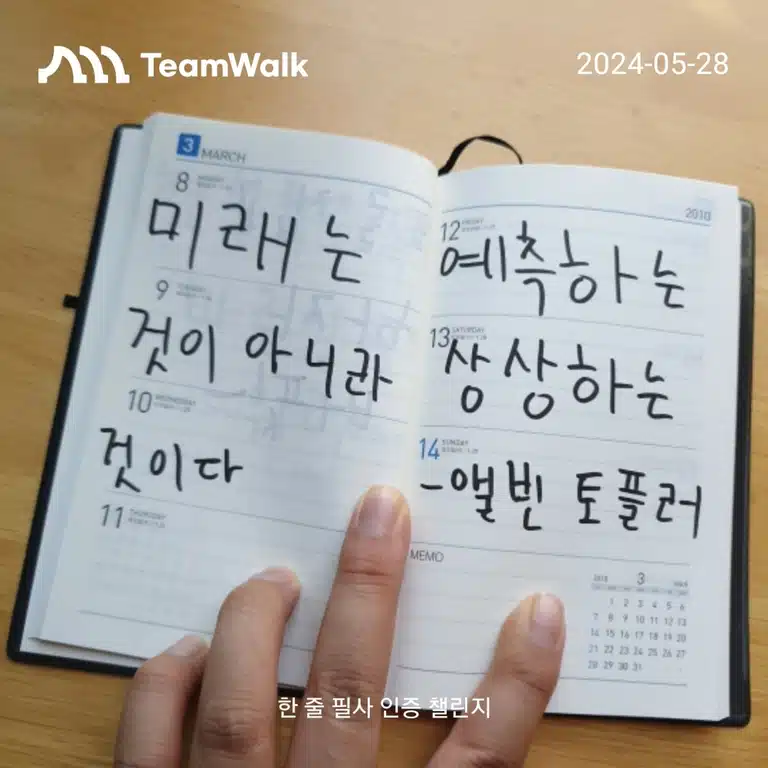 TeamWalk
2024-05-28
3 MARCH
2010
8 MONDAY
미래는
12 FRIDAY
예측하는
9 TUESDAY
것이 아니라
13 SATURDAY
상상하는
10 WEDNESDAY
것이다
14 SUNDAY
-앨빈 토플러
11 THURSDAY
MEMO
2010 3
1 2 3 4 5 6
7 8 9 10 11 12 13
14 15 16 17 18 19 20
21 22 23 24 25 26 27
28 29 30 31
한 줄 필사 인증 챌린지